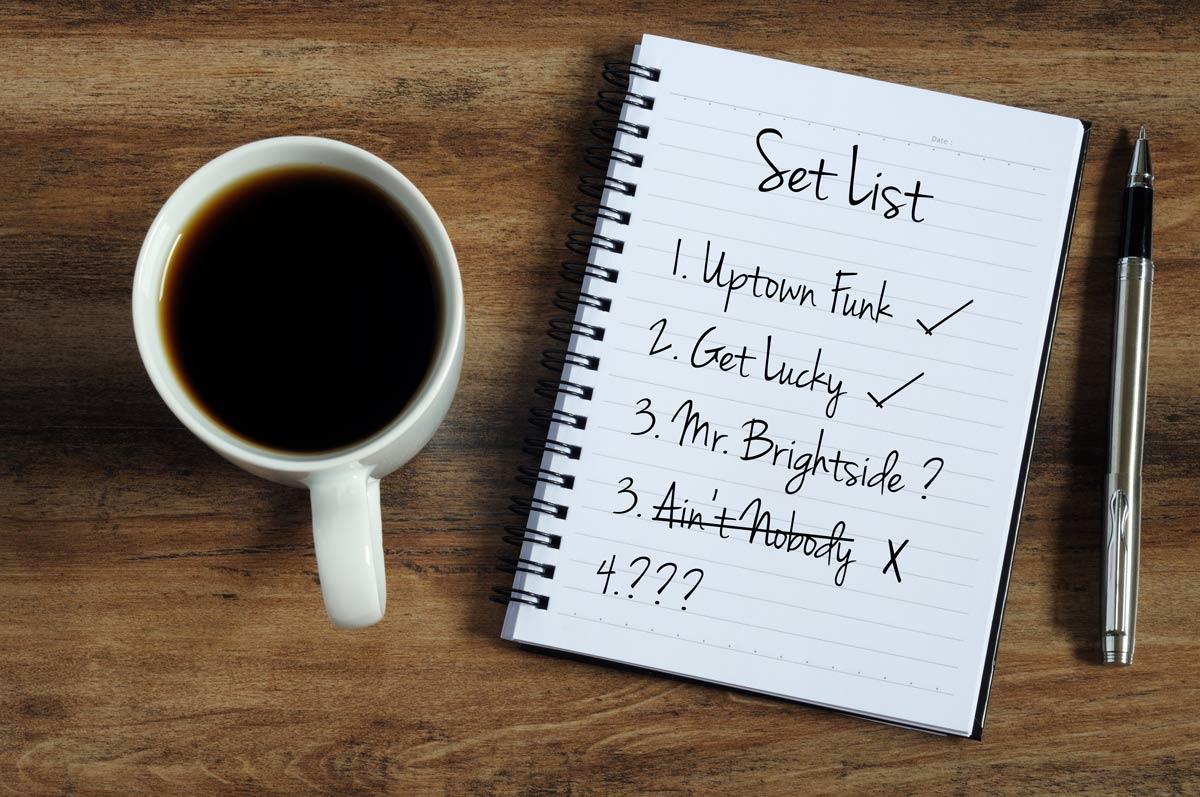 Date :
Set List
1. Uptown Funk ✓
2. Get Lucky ✓
3. Mr. Brightside ?
3. Ain't Nobody X
4. ???